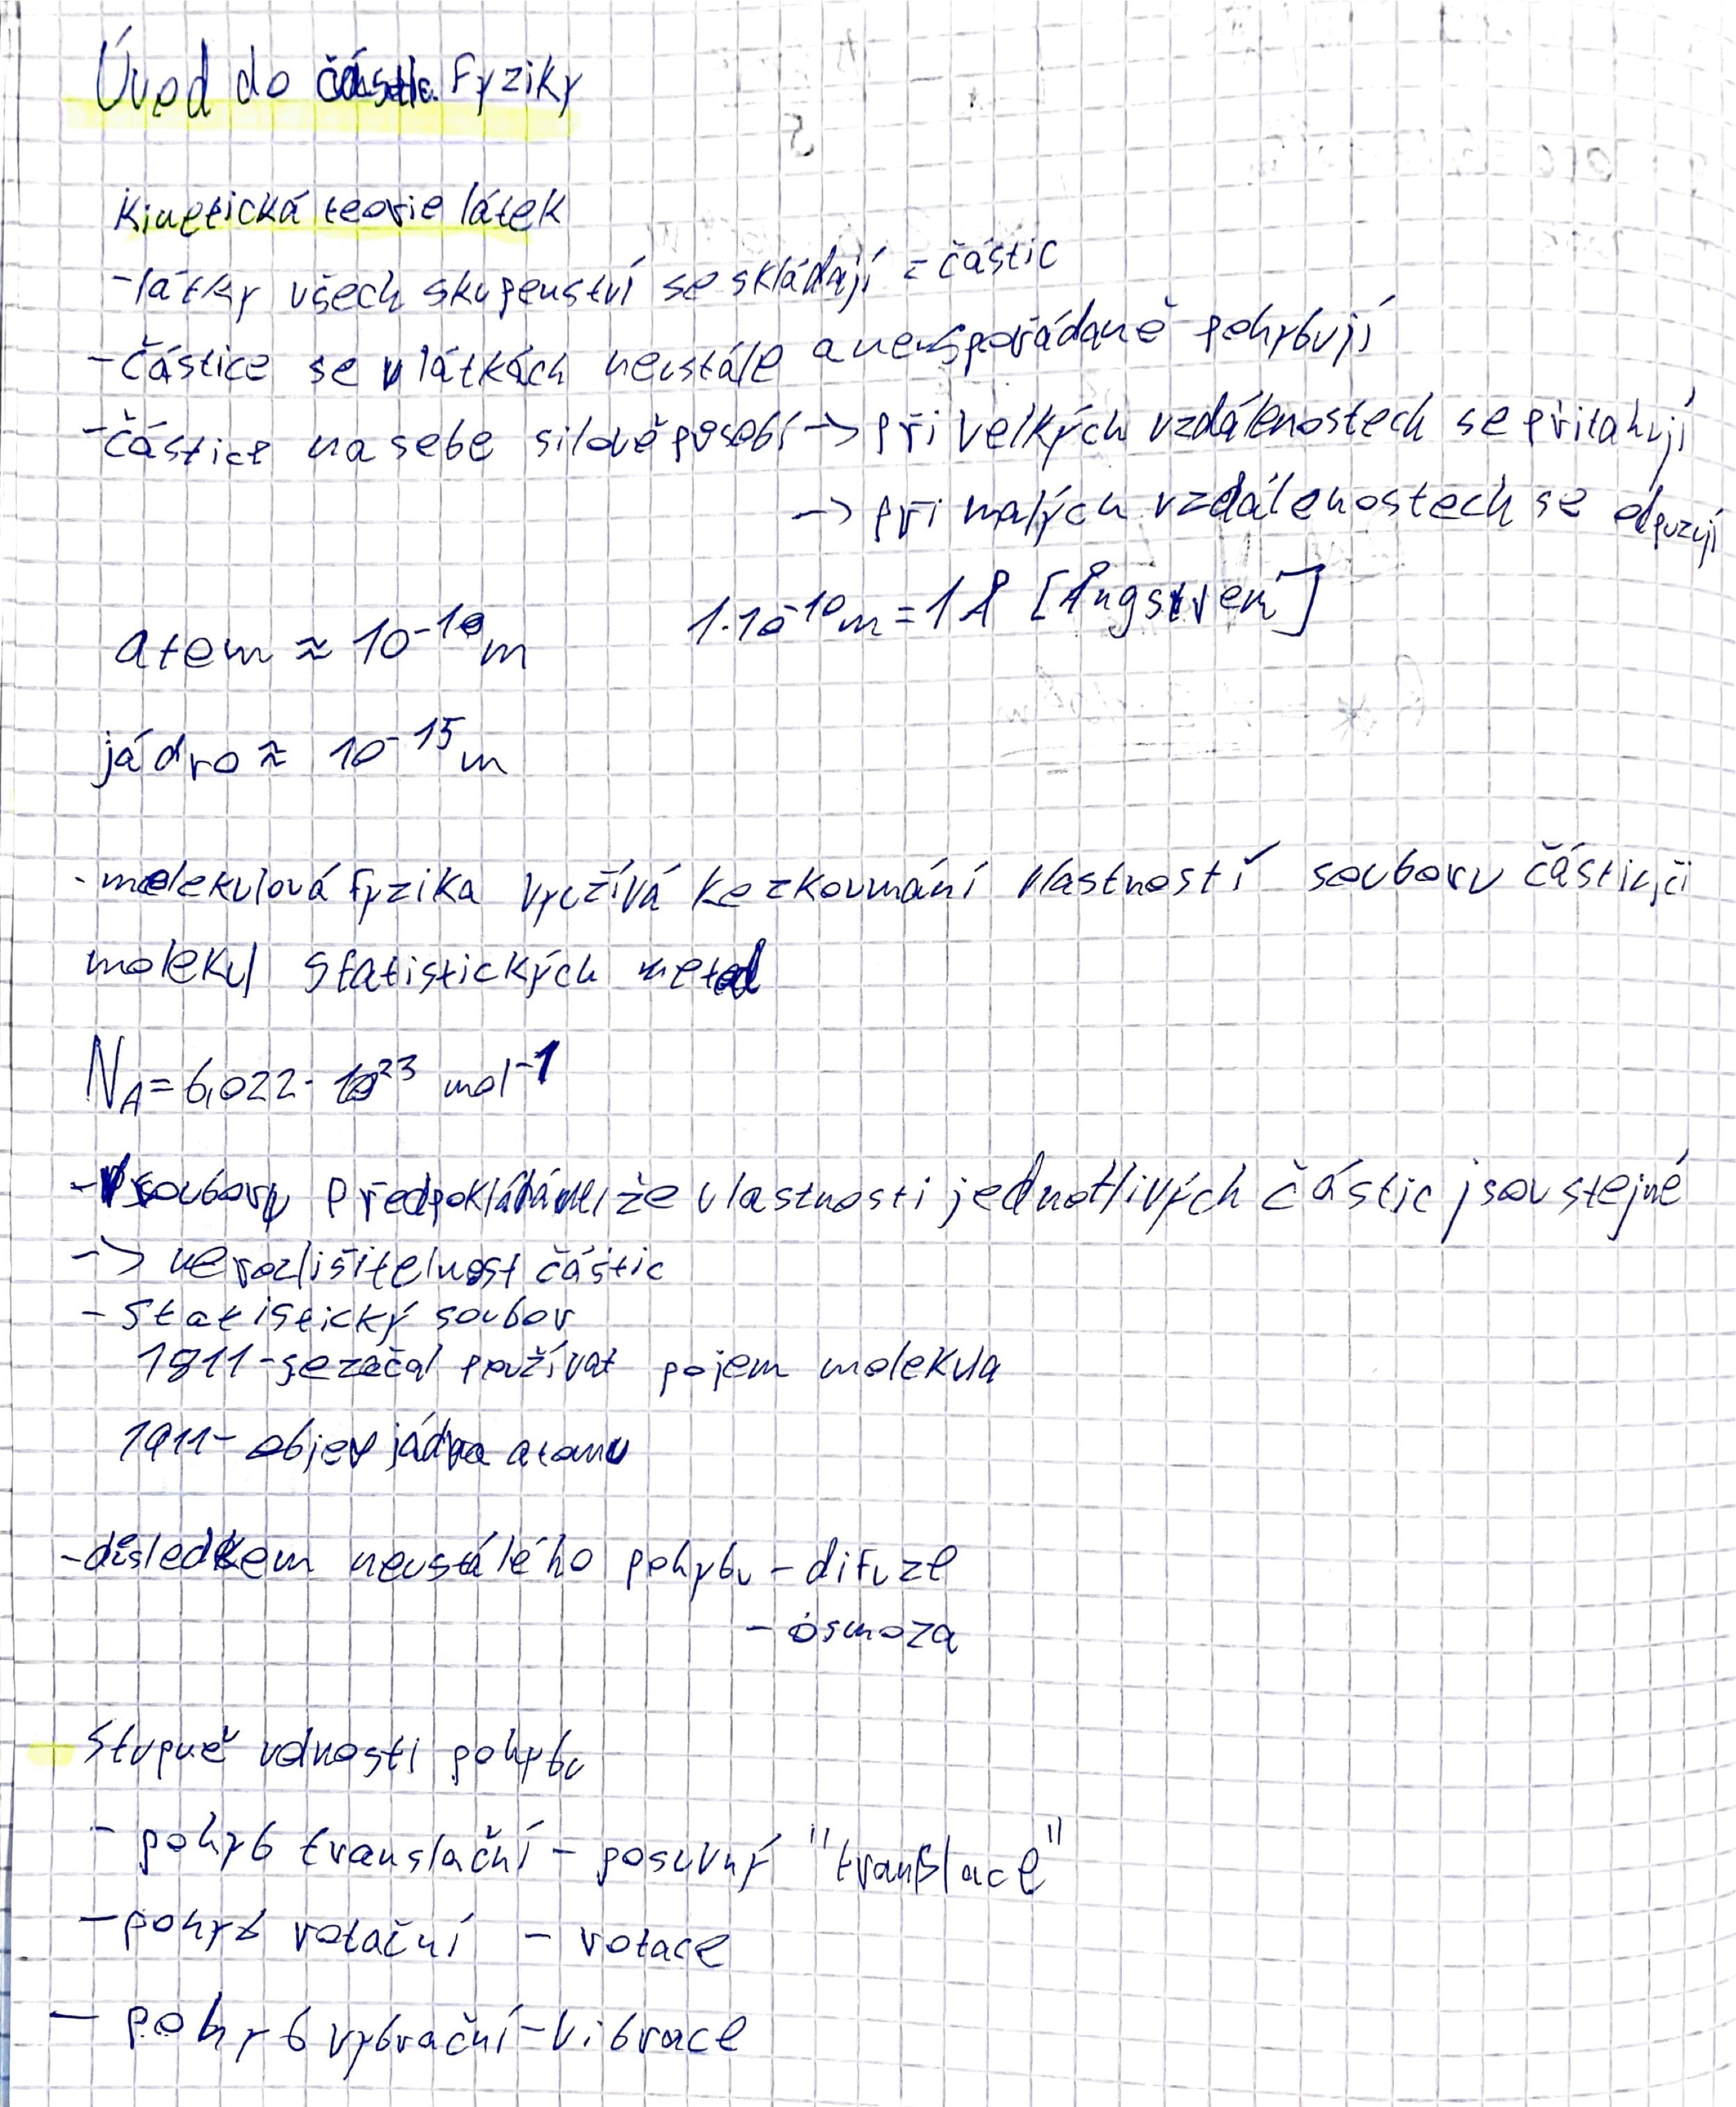 Úvod do částic. fyziky
Kinetická teorie látek
-látky všech skupenství se skládají z částic
-částice se v látkách neustále a neuspořádaně pohybují
-částice na sebe silově působí -> při velkých vzdálenostech se přitahují
-> při malých vzdálenostech se odpuzují
atom ≈ 10⁻¹⁰ m 1·10⁻¹⁰ m = 1 Å [Ångstrem]
jádro ≈ 10⁻¹⁵ m
-molekulová fyzika využívá ke zkoumání vlastností souboru částic, či
molekul statistických metod
N_A = 6,022 · 10²³ mol⁻¹
-V souboru předpokládáme, že vlastnosti jednotlivých částic jsou stejné
-> nerozlišitelnost částic
- statistický soubor
1811 - se začal používat pojem molekula
1911 - objev jádra atomu
-důsledkem neustálého pohybu - difuze
- osmoza
Stupně volnosti pohybu
- pohyb translační - posuvný "translace"
- pohyb rotační - rotace
- pohyb vybrační - vibrace